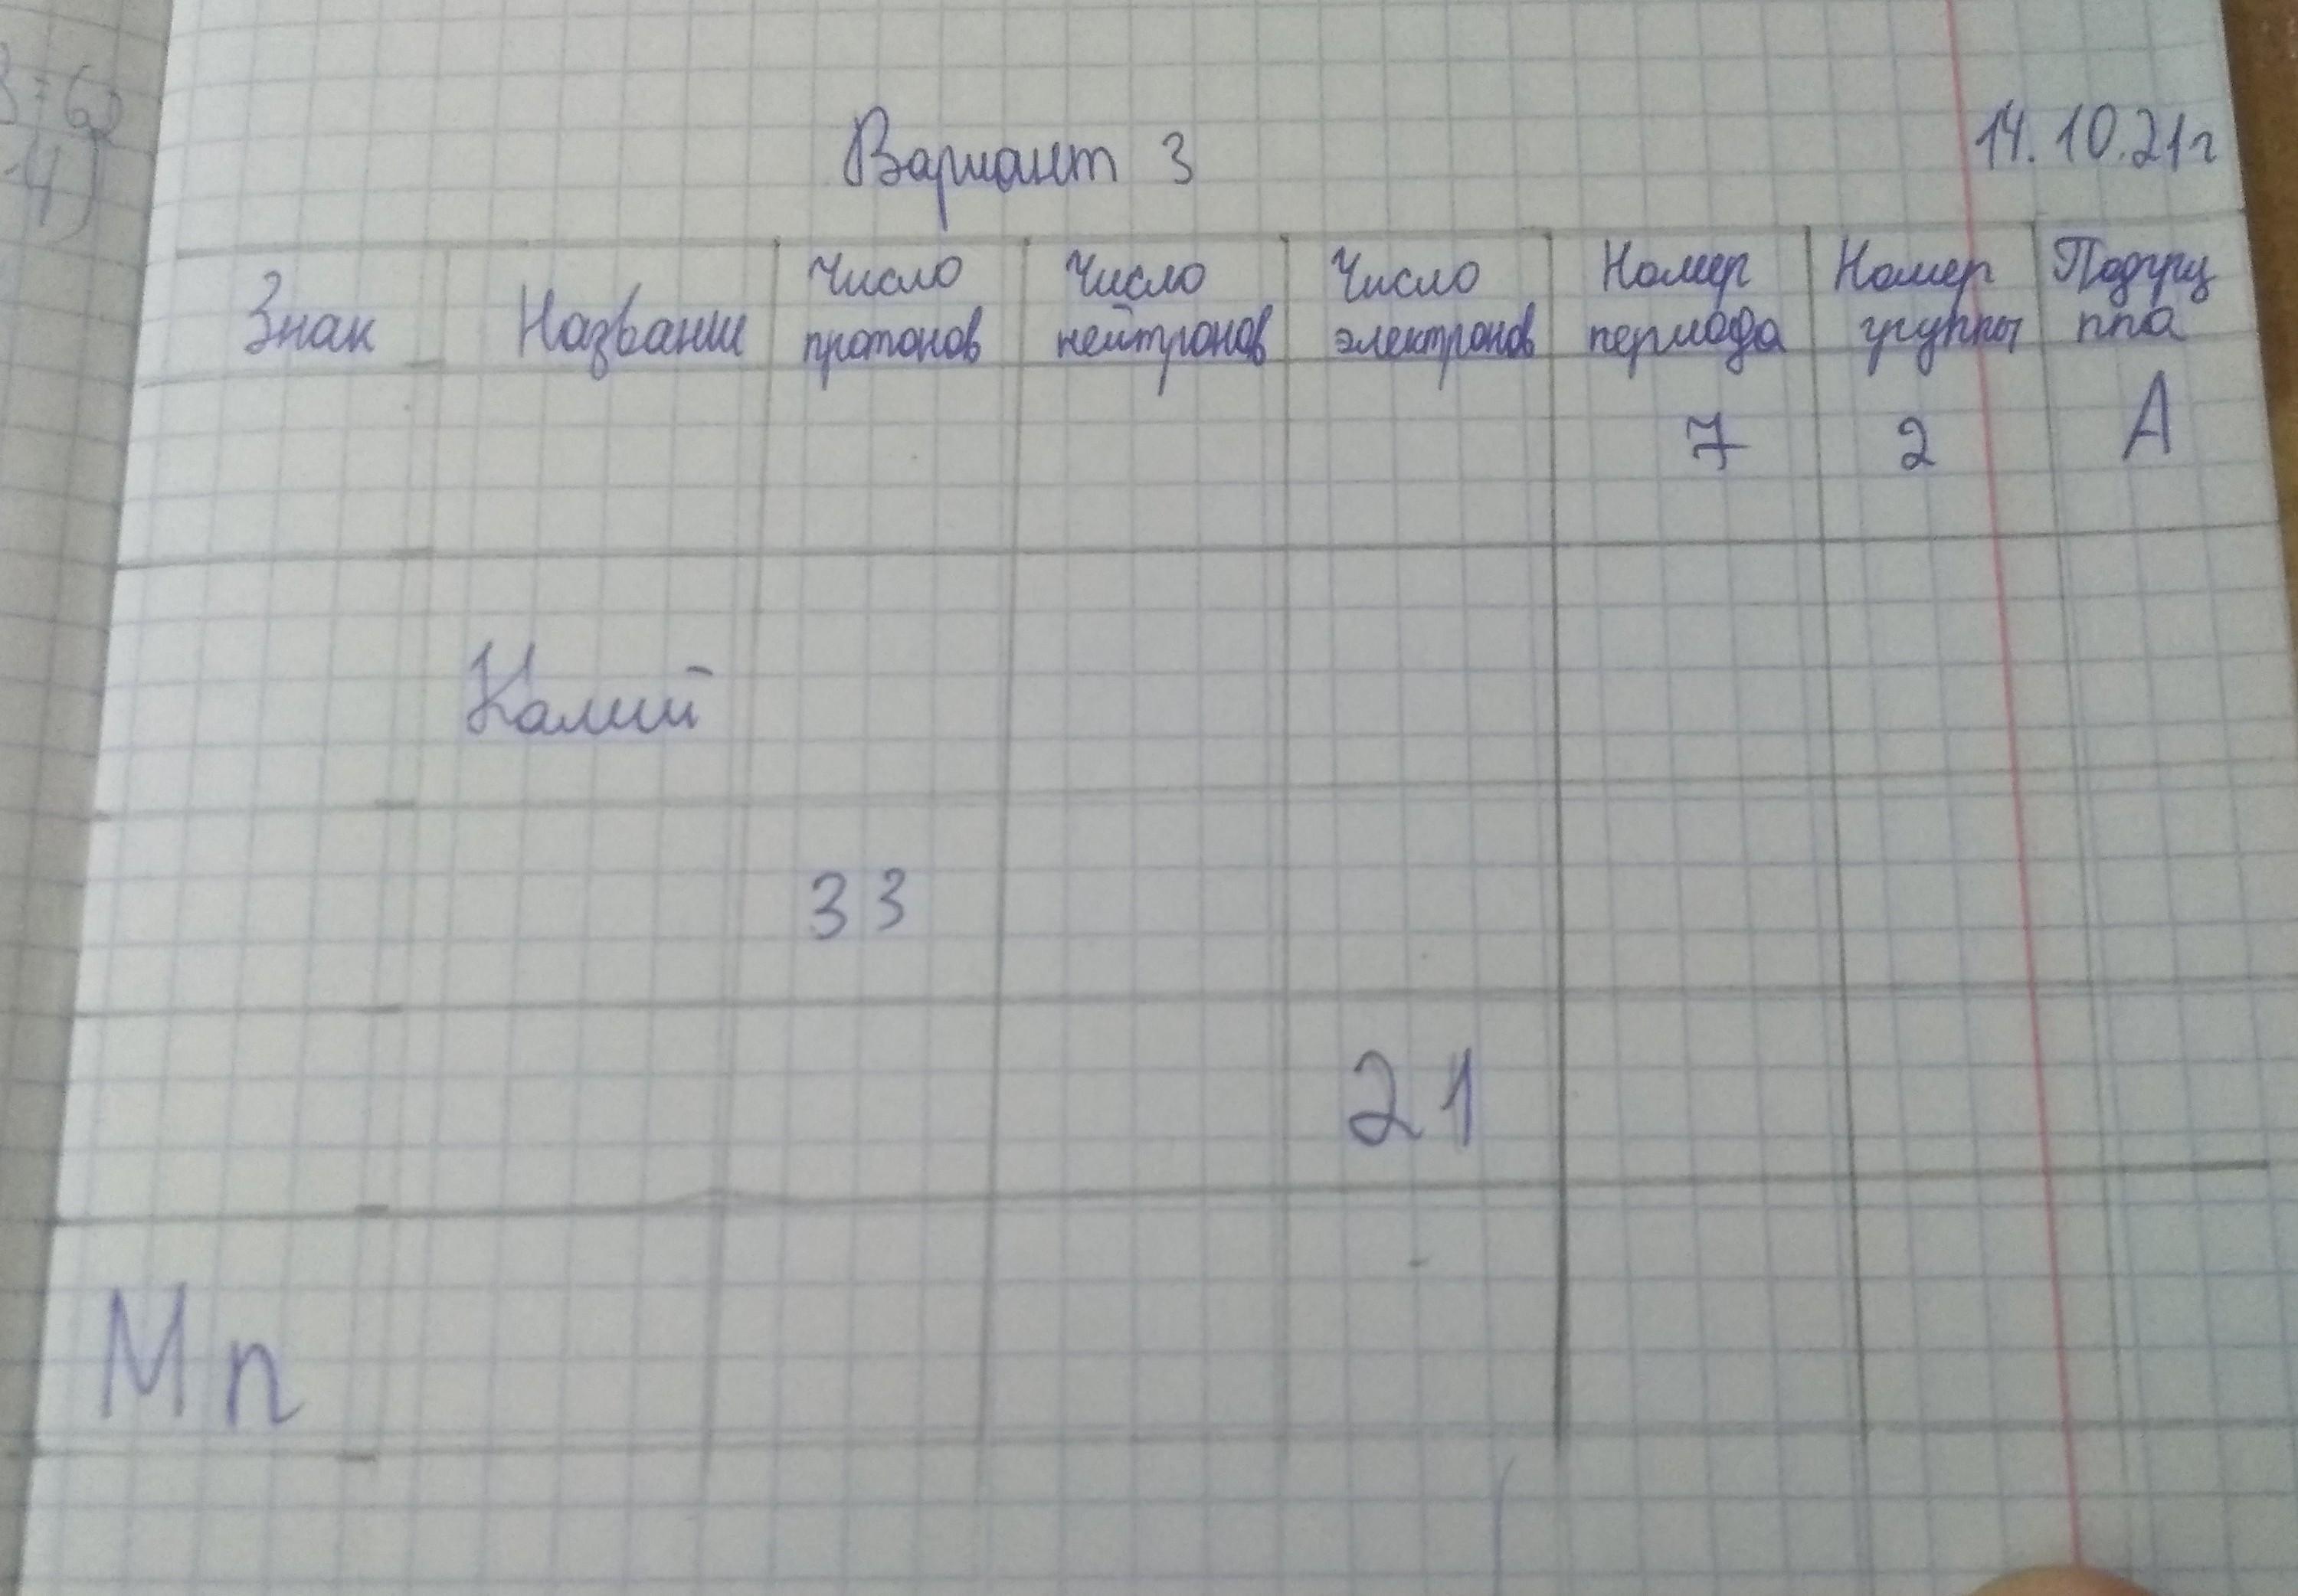 3 = 62
4)
Вариант 3
14.10.21г
Знак Название Число протонов Число нейтронов Число электронов Номер периода Номер группы Подгру ппа
7 2 А
Калий
33
21
Mn